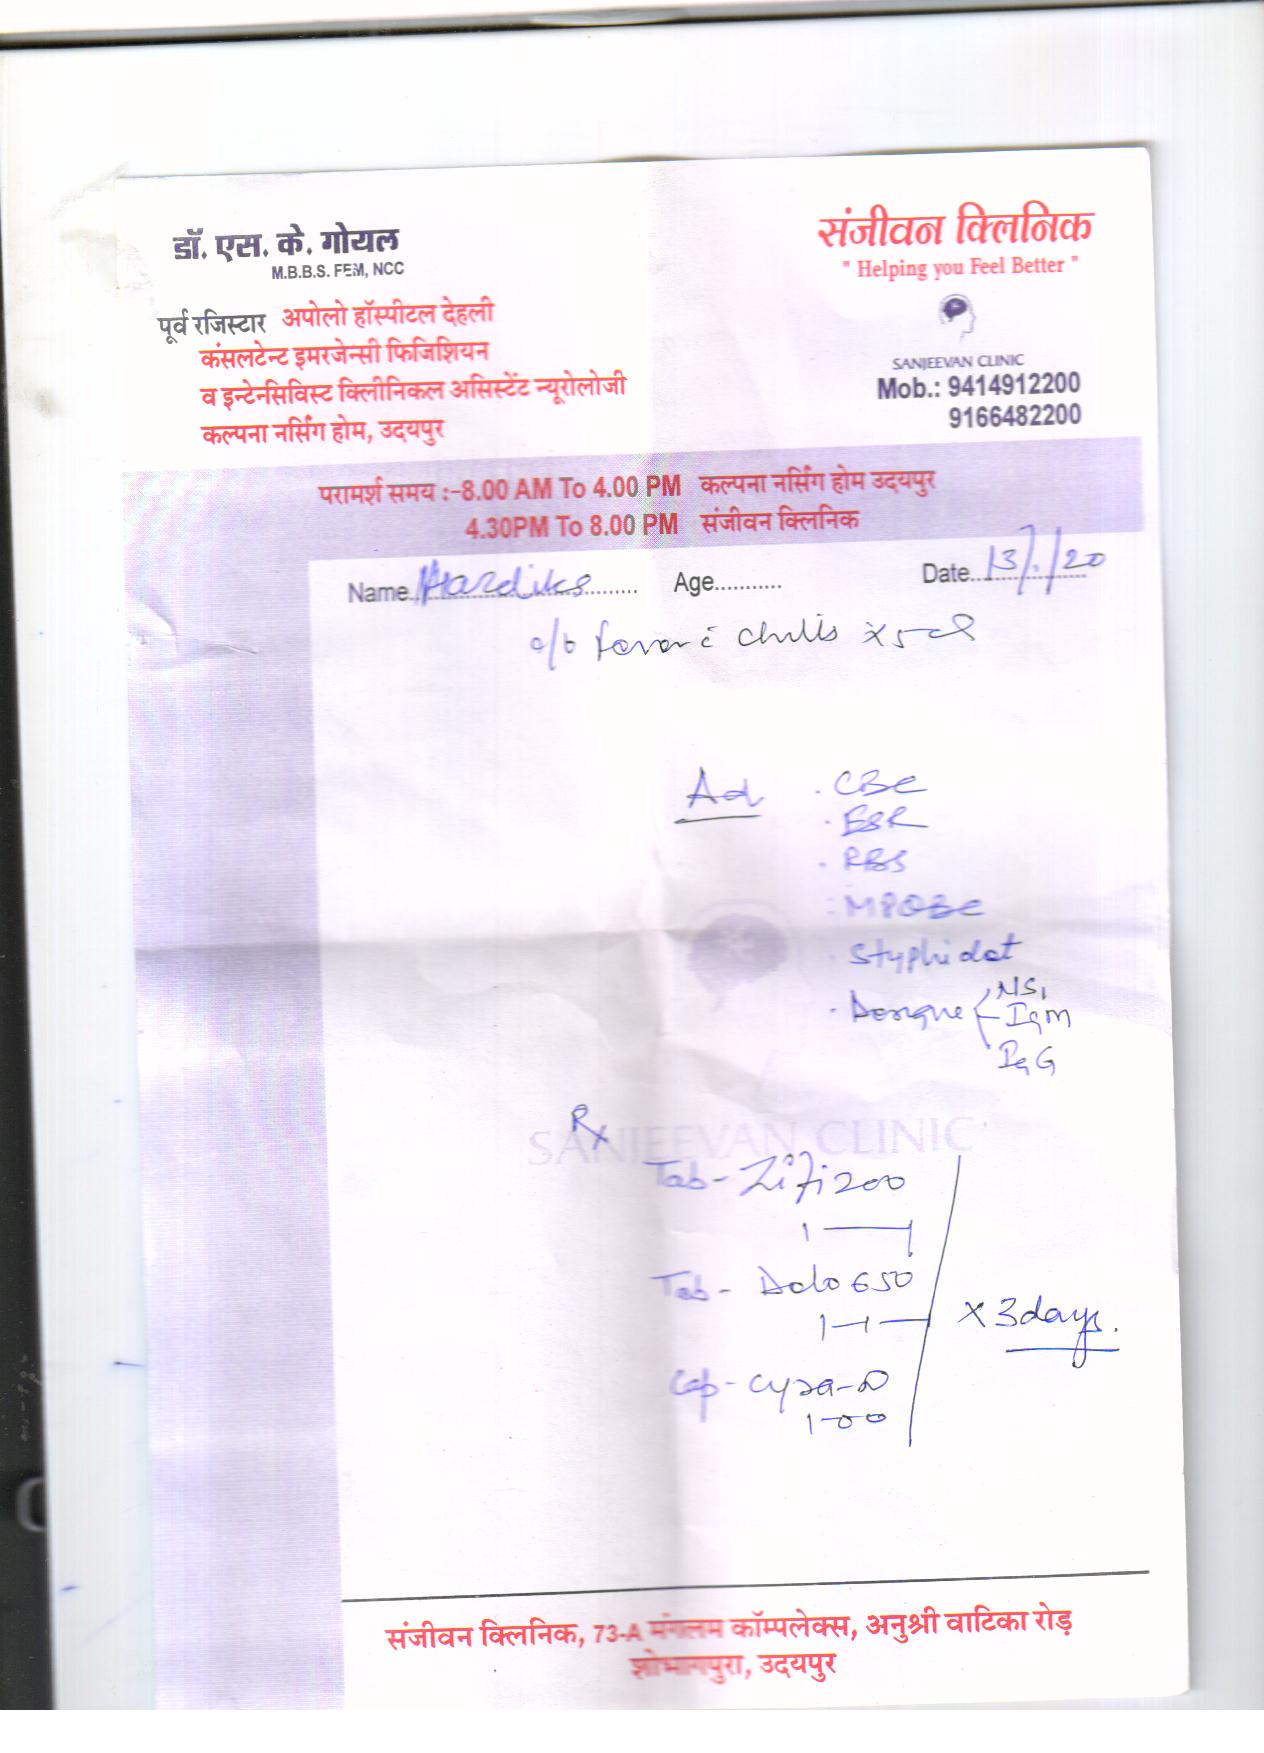 डॉ. एस. के. गोयल
M.B.B.S. FEM, NCC
पूर्व रजिस्टार अपोलो हॉस्पीटल देहली
कंसलटेन्ट इमरजेन्सी फिजिशियन
व इन्टेनसिविस्ट क्लिीनिकल असिस्टेंट न्यूरोलोजी
कल्पना नर्सिंग होम, उदयपुर
संजीवन क्लिनिक
" Helping you Feel Better "
SANJEEVAN CLINIC
Mob.: 9414912200
9166482200
परामर्श समय :-8.00 AM To 4.00 PM कल्पना नर्सिंग होम उदयपुर
4.30PM To 8.00 PM संजीवन क्लिनिक
Name..Hardik.......... Age........... Date..13/1/20
fever c chills x 5 d
Ad . CBC
. ESR
. RBS
: MPQBC
. Styphidot
. Dengue NS1
IgM
IgG
Rx
SANJEEVAN CLINIC
Tab- Zifi 200
1 — 1
Tab- Dolo 650
1—1—1
x 3 days.
Cap- Cyra-D
1-0-0
संजीवन क्लिनिक, 73-A मंगलम कॉम्पलेक्स, अनुश्री वाटिका रोड़
शोभागपुरा, उदयपुर